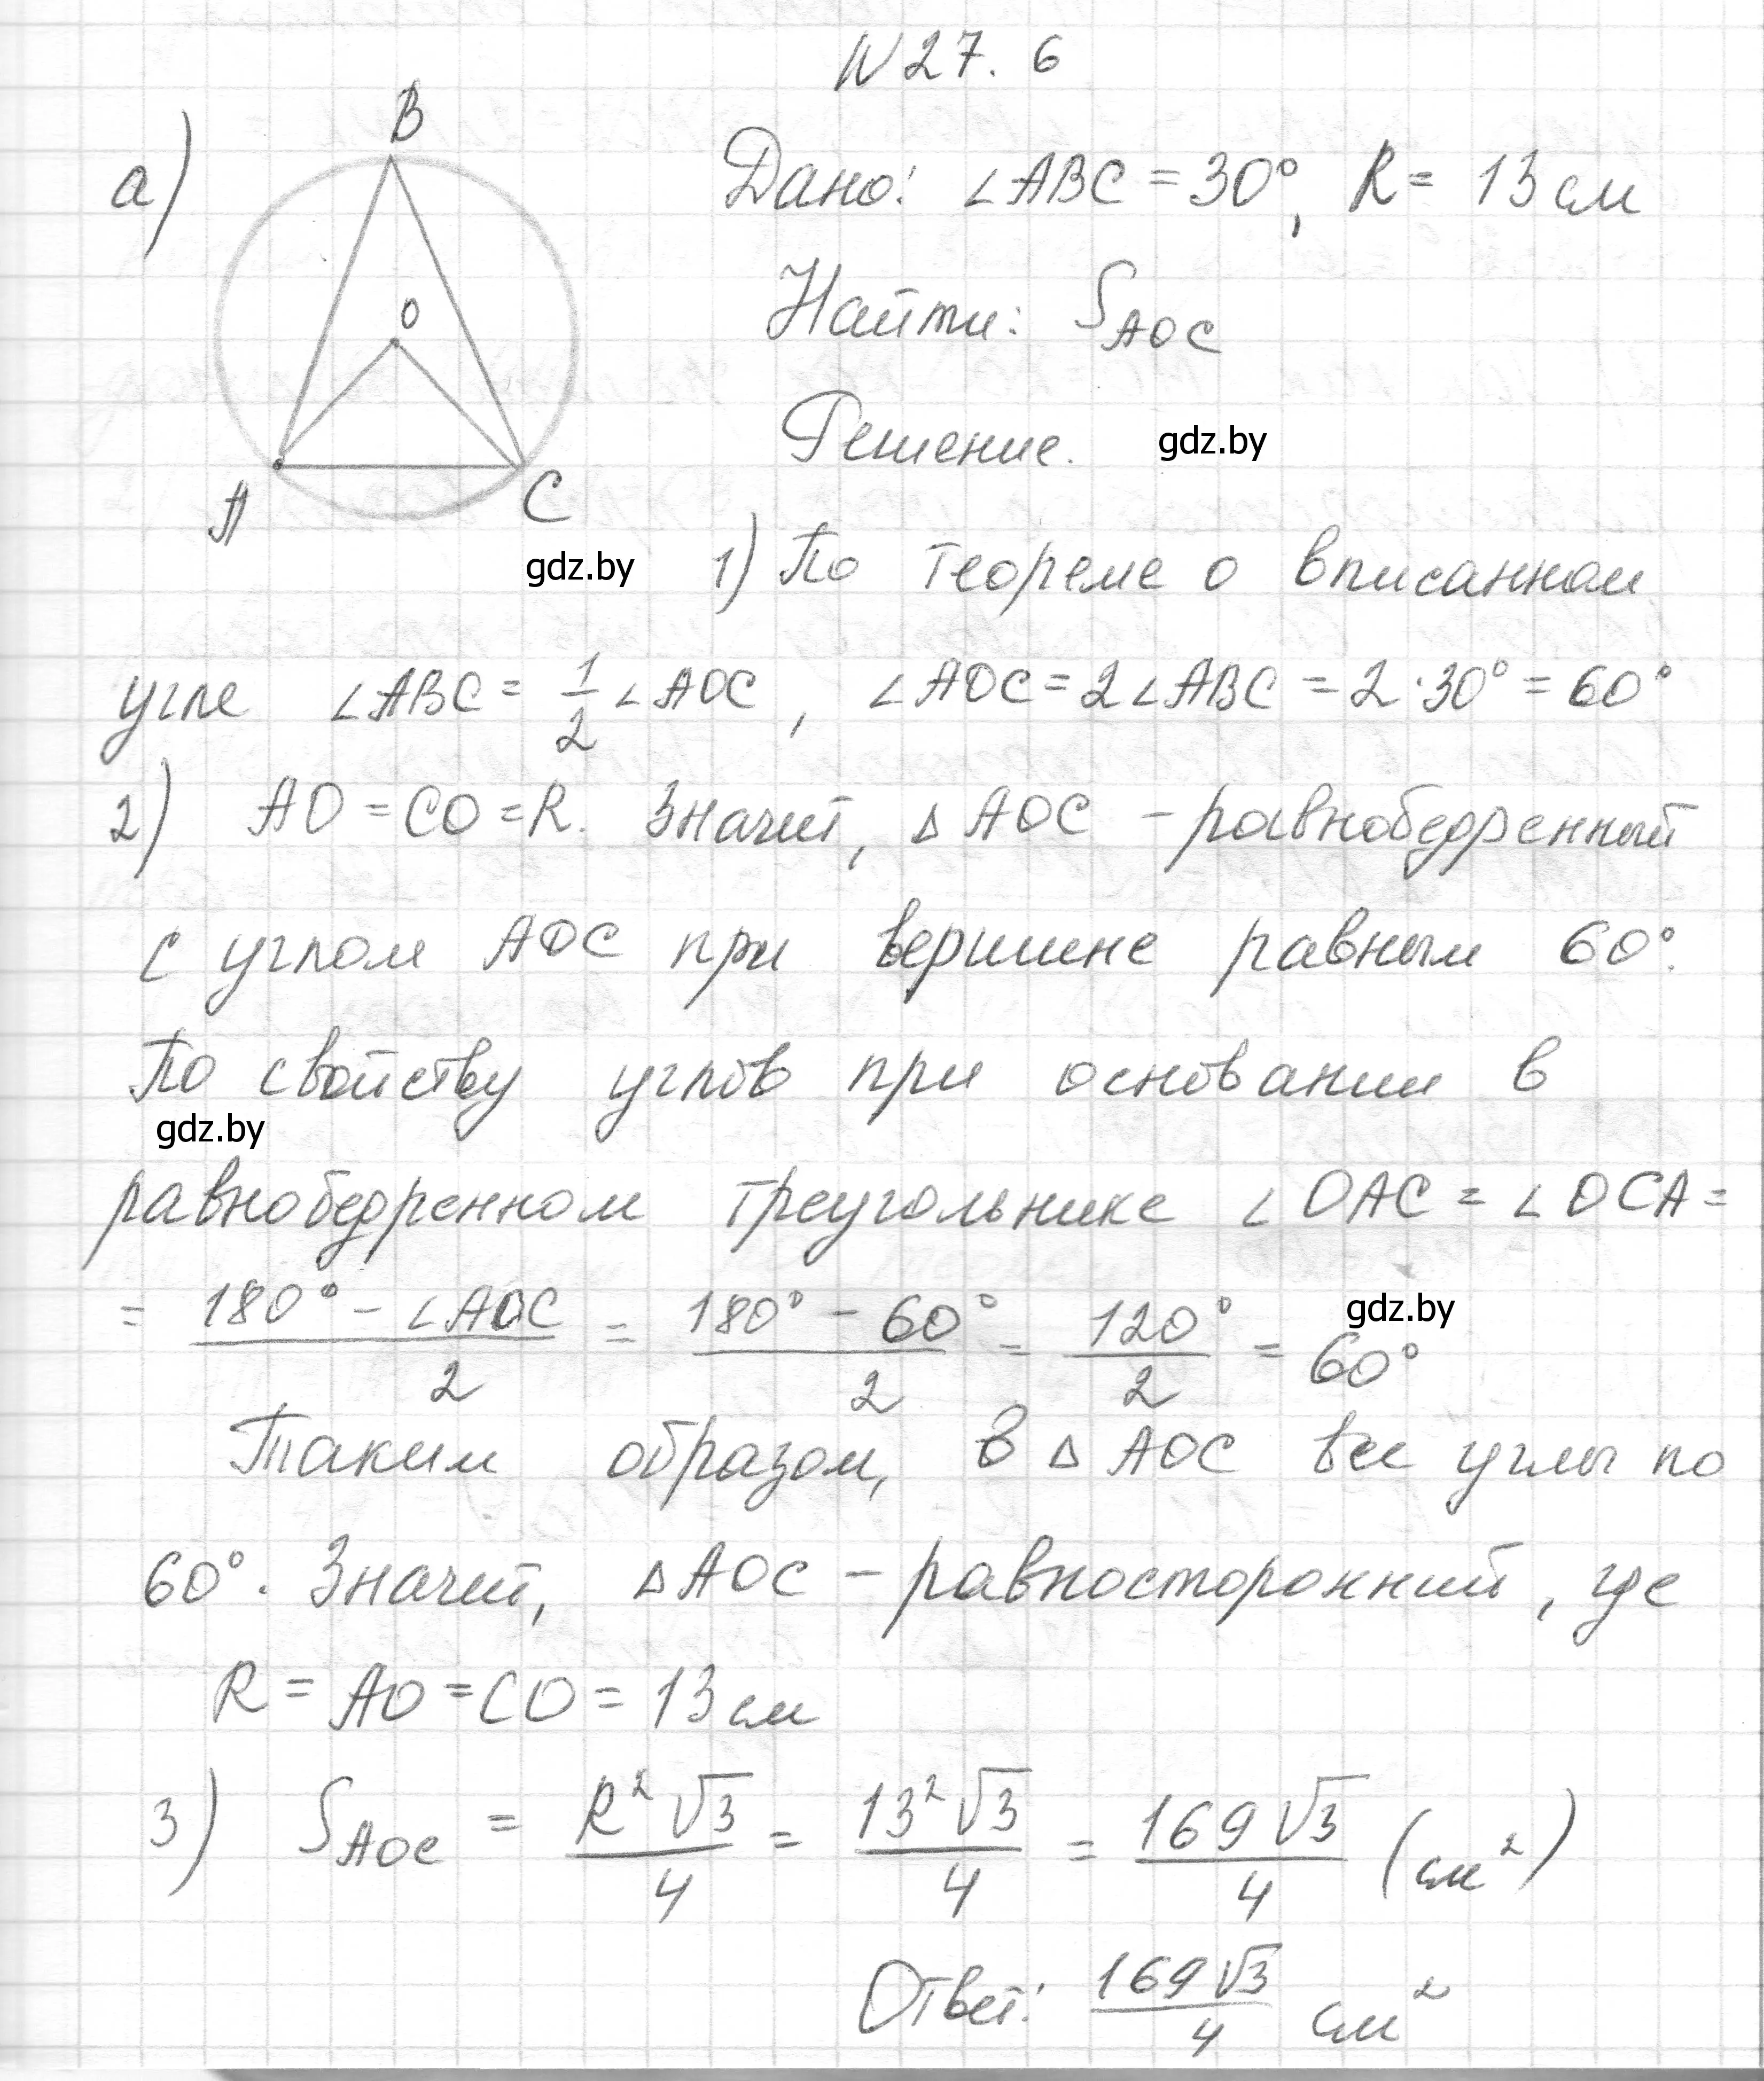 N 27. 6
а)
B
O
A
C
Дано: ∠ABC = 30°, R = 13 см
Найти: S_AOC
Решение.
gdz.by
gdz.by
1) По теореме о вписанном
угле ∠ABC = 1/2 ∠AOC, ∠AOC = 2∠ABC = 2·30° = 60°
2) AO = CO = R. Значит, △AOC - равнобедренный
с углом AOC при вершине равным 60°.
По свойству углов при основании в
gdz.by
равнобедренном треугольнике ∠OAC = ∠OCA =
= (180° - ∠AOC)/2 = (180° - 60°)/2 = 120°/2 = 60°
gdz.by
Таким образом, в △AOC все углы по
60°. Значит, △AOC - равносторонний, где
R = AO = CO = 13 см
3) S_AOC = R²√3/4 = 13²√3/4 = 169√3/4 (см²)
Ответ: 169√3/4 см²